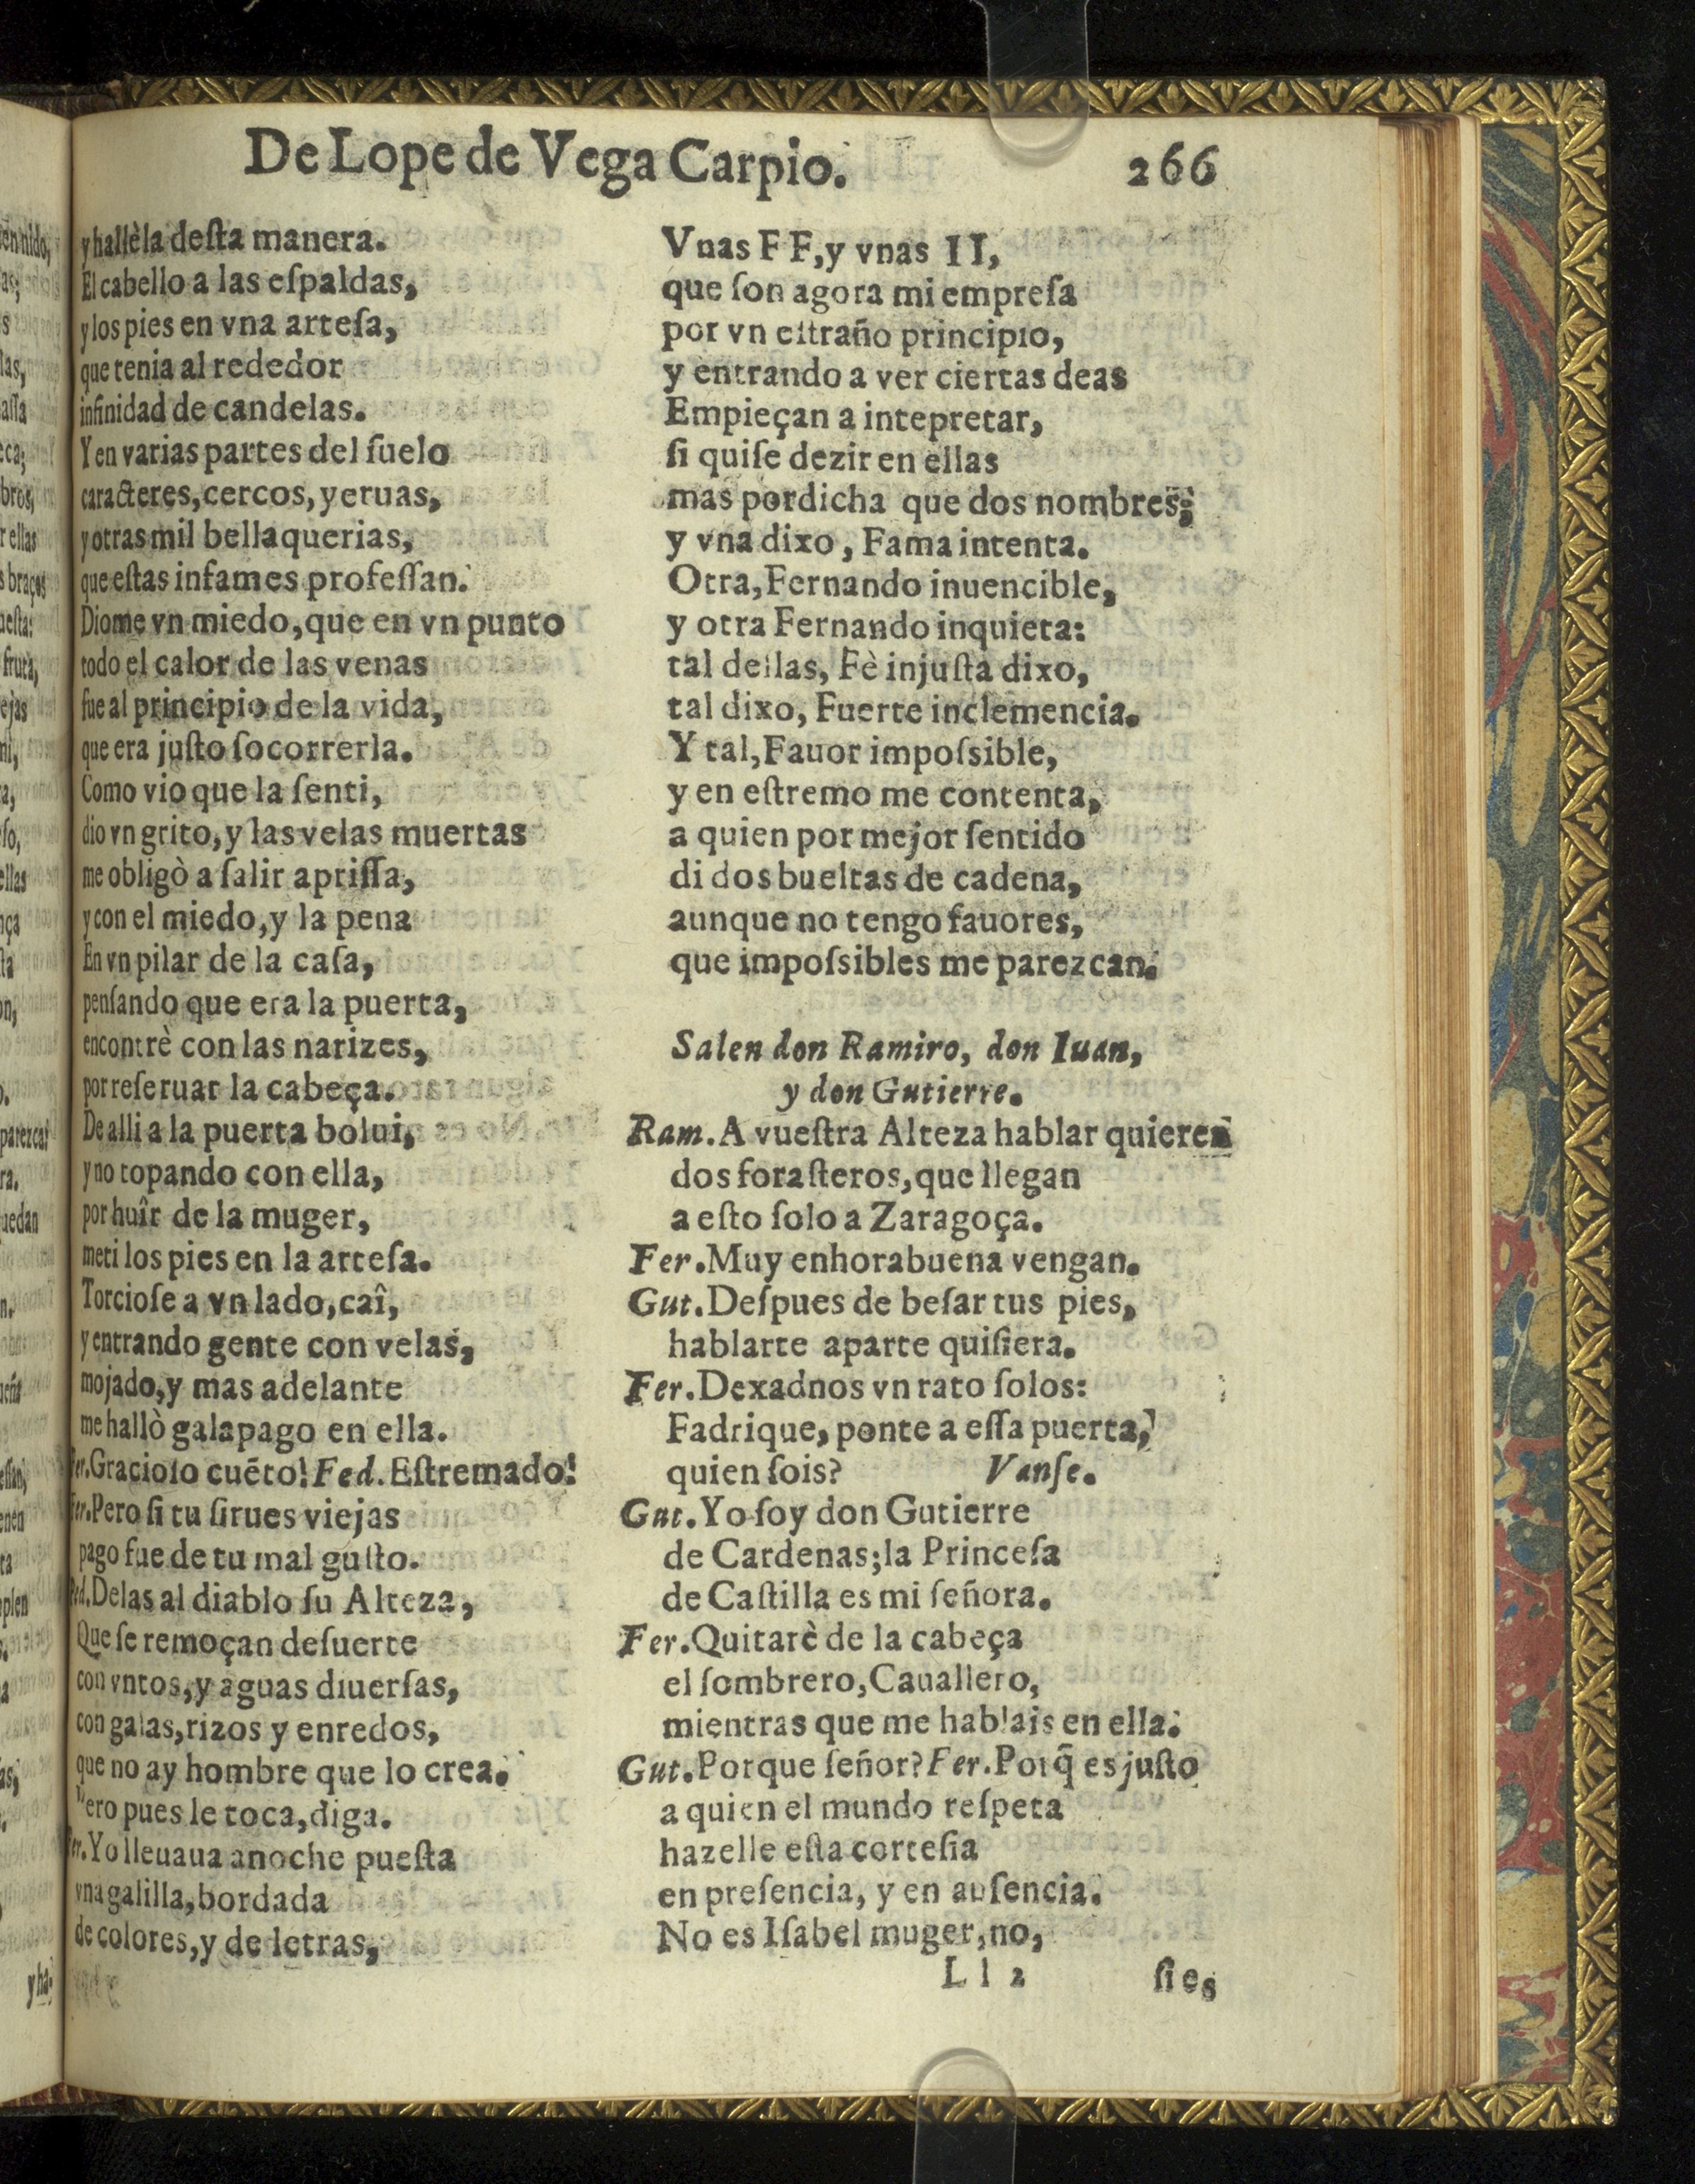 De Lope de Vega Carpio. 266
y hallèla deſta manera.
El cabello a las eſpaldas,
y los pies en vna arteſa,
que tenia al rededor
infinidad de candelas.
Y en varias partes del ſuelo
caracteres, cercos, yeruas,
y otras mil bellaquerias,
que eſtas infames profeſſan.
Diome vn miedo, que en vn punto
todo el calor de las venas
fue al principio de la vida,
que era juſto ſocorrerla.
Como vio que la ſenti,
dio vn grito, y las velas muertas
me obligò a ſalir apriſſa,
y con el miedo, y la pena
En vn pilar de la caſa,
penſando que era la puerta,
encontrè con las narizes,
por reſeruar la cabeça.
De alli a la puerta bolui,
y no topando con ella,
por huîr de la muger,
meti los pies en la arteſa.
Torcioſe a vn lado, caî,
y entrando gente con velas,
mojado, y mas adelante
me hallò galapago en ella.
Fer. Gracioſo cuēto! Fed. Eſtremado!
Fer. Pero ſi tu ſirues viejas
pago fue de tu mal guſto.
Fed. Delas al diablo ſu Alteza,
Que ſe remoçan deſuerte
con vntos, y aguas diuerſas,
con galas, rizos y enredos,
que no ay hombre que lo crea.
Pero pues le toca, diga.
Fer. Yo lleuaua anoche pueſta
vna galilla, bordada
de colores, y de letras,
Vnas F F, y vnas I I,
que ſon agora mi empreſa
por vn eſtraño principio,
y entrando a ver ciertas deas
Empieçan a intepretar,
ſi quiſe dezir en ellas
mas por dicha que dos nombres;
y vna dixo, Fama intenta.
Otra, Fernando inuencible,
y otra Fernando inquieta:
tal dellas, Fè injuſta dixo,
tal dixo, Fuerte inclemencia.
Y tal, Fauor impoſsible,
y en eſtremo me contenta,
a quien por mejor ſentido
di dos bueltas de cadena,
aunque no tengo fauores,
que impoſsibles me parezcan.
Salen don Ramiro, don Iuan,
y don Gutierre.
Ram. A vueſtra Alteza hablar quieren
dos foraſteros, que llegan
a eſto ſolo a Zaragoça.
Fer. Muy enhorabuena vengan.
Gut. Deſpues de beſar tus pies,
hablarte aparte quiſiera.
Fer. Dexadnos vn rato ſolos:
Fadrique, ponte a eſſa puerta,
quien ſois? Vanſe.
Gut. Yo ſoy don Gutierre
de Cardenas; la Princeſa
de Caſtilla es mi ſeñora.
Fer. Quitarè de la cabeça
el ſombrero, Cauallero,
mientras que me hablais en ella.
Gut. Porque ſeñor? Fer. Porq̃ es juſto
a quien el mundo reſpeta
hazelle eſta corteſia
en preſencia, y en auſencia.
No es Iſabel muger, no,
L l 2 ſi es